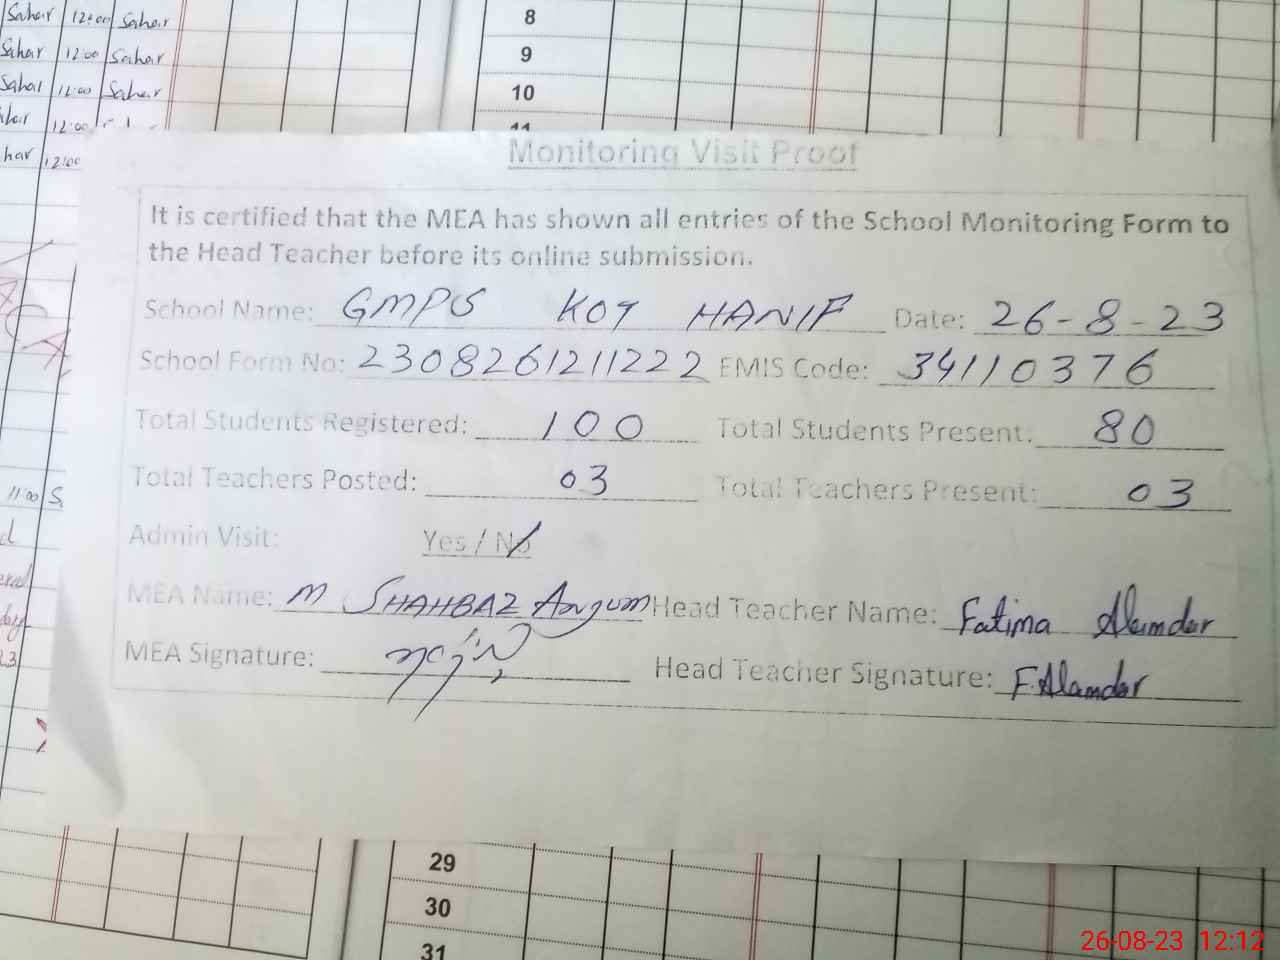 Sahar 12:00 Sahar
Sahar 12:00 Sahar
Sahar 12:00 Sahar
12:00
har 12:00
8
9
10
11
Monitoring Visit Proof
It is certified that the MEA has shown all entries of the School Monitoring Form to
the Head Teacher before its online submission.
School Name: GMPS KOT HANIF Date: 26-8-23
School Form No: 2308261211222 EMIS Code: 34110376
Total Students Registered: 100 Total Students Present: 80
Total Teachers Posted: 03 Total Teachers Present: 03
Admin Visit: Yes / No
MEA Name: M SHAHBAZ Anjum Head Teacher Name: Fatima Alamdar
MEA Signature: Head Teacher Signature: F.Alamdar
11:00 S
29
30
31
26-08-23 12:12